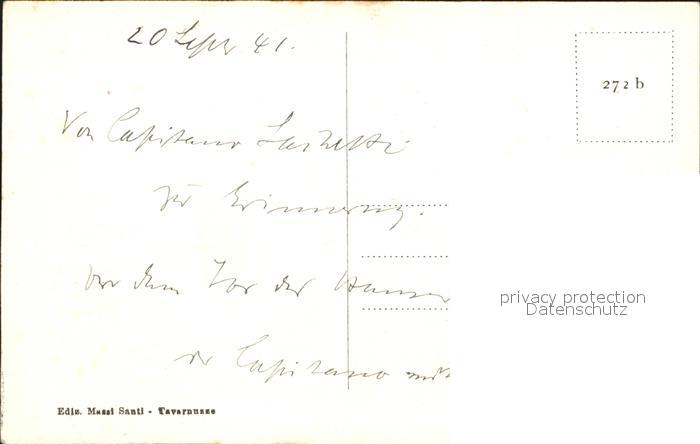 20 Sept 41.
272 b
Von Capitano
zur Erinnerung.
Vor dem Tor des
der Capitano
privacy protection
Datenschutz
Ediz. Massi Santi - Tavarnuzze